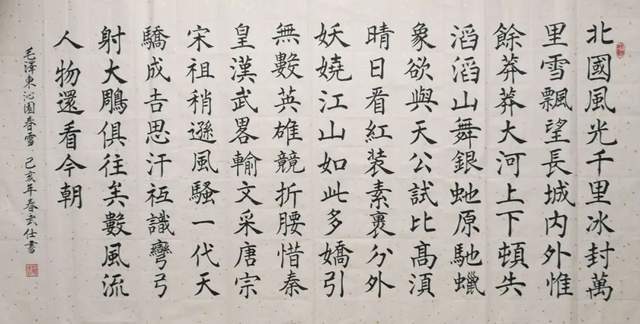 北國風光千里冰封萬
里雪飄望長城内外惟
餘莽莽大河上下頓失
滔滔山舞銀虵原馳蠟
象欲與天公試比髙湏
晴日看紅装素裹分外
妖嬈江山如此多嬌引
無數英雄競折腰惜秦
皇漢武畧輸文采唐宗
宋祖稍遜風騷一代天
驕成吉思汗祗識彎弓
射大鵰俱往矣數風流
人物還看今朝
毛澤東沁園春雪 己亥年春玄仕書